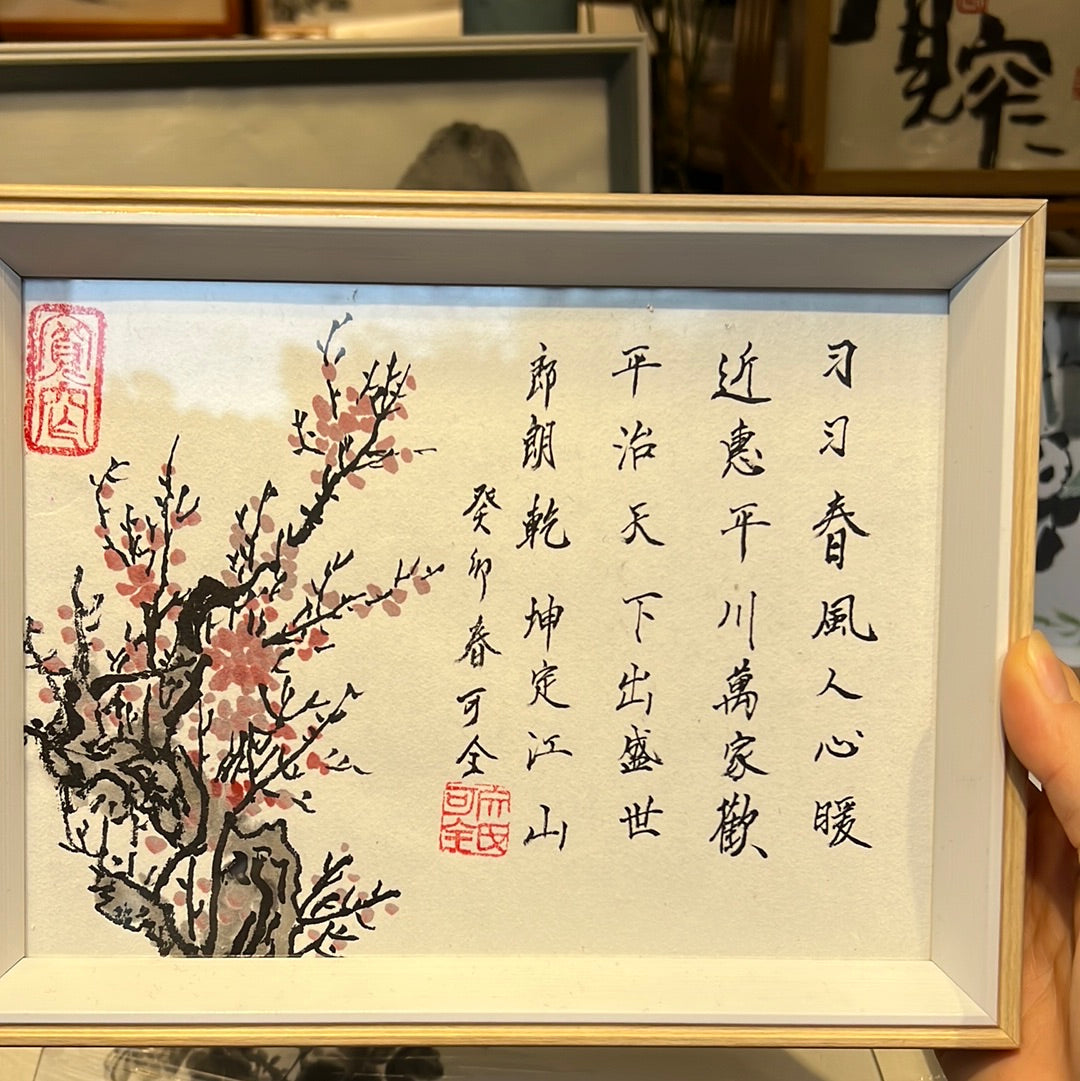 习习春風人心暖
近惠平川萬家歡
平治天下出盛世
郎朗乾坤定江山
癸卯春可全